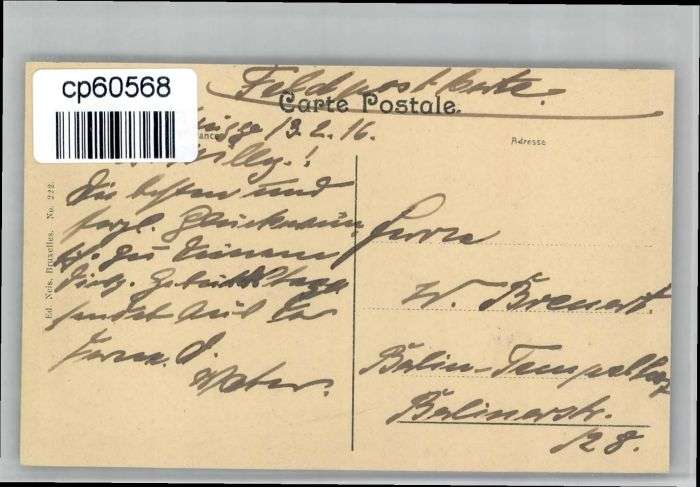 cp60568
Feldpostkarte.
Carte Postale.
Adresse
Brügge 13.2.16.
Willy!
Die besten und
herzl. Glückwün
zu Deinem
diesj. Geburtstage
sendet
Ed. Nels. Bruxelles. No. 222.
Herrn
W. Brenert.
Berlin-Tempelhof
Berlinerstr.
128.